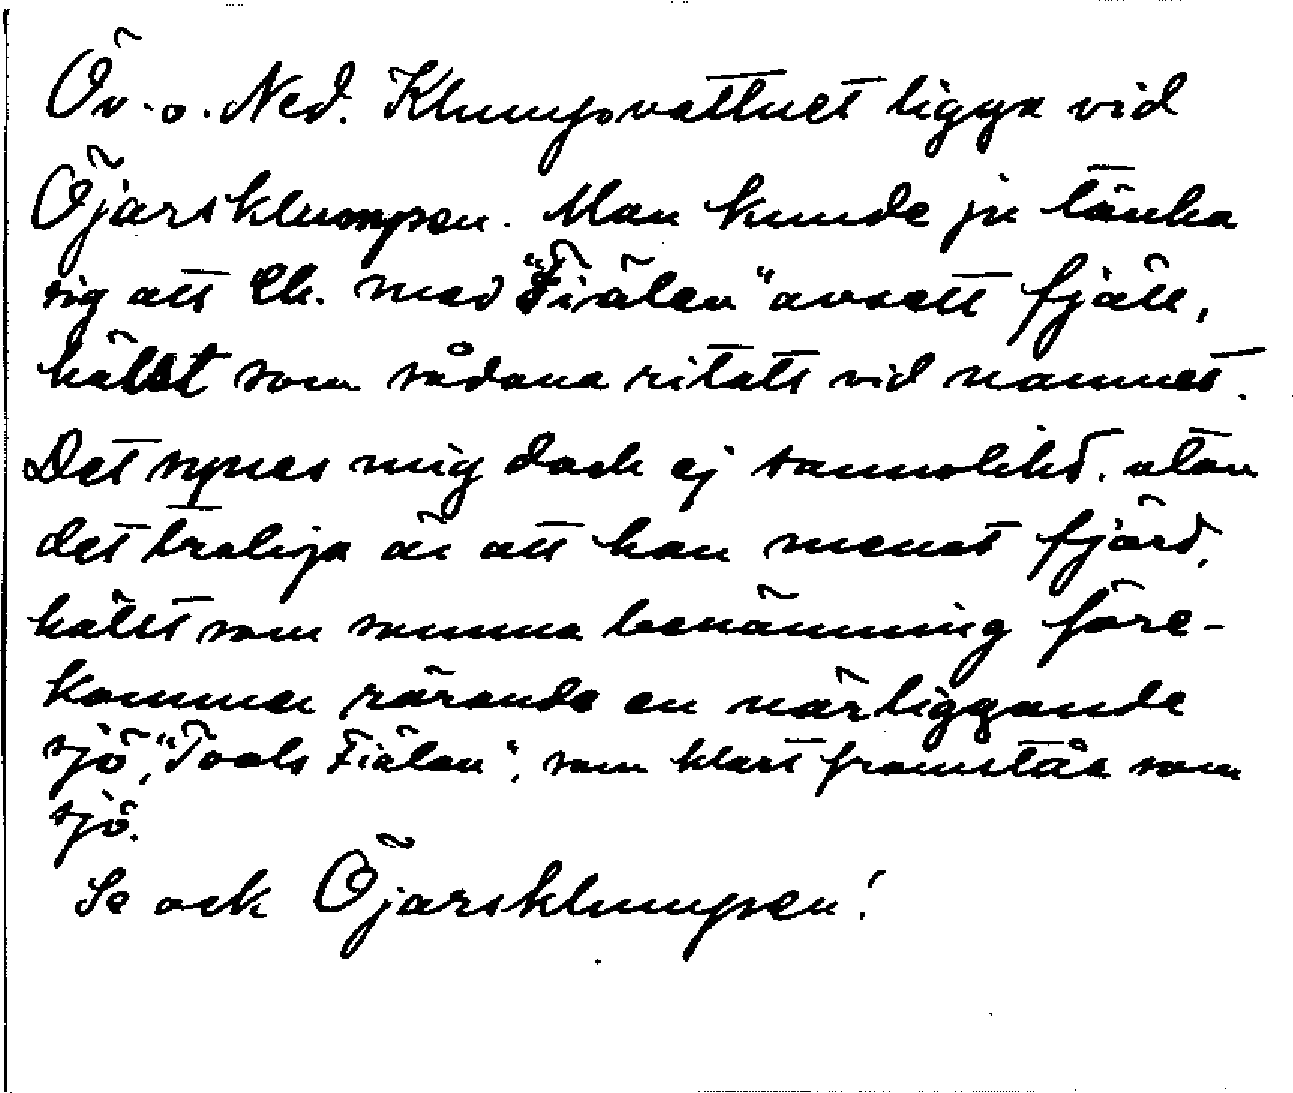 Öv. o. Ned. Klumpvattnet ligga vid
Öjarsklumpen. Man kunde ju tänka
sig att Eh. med "Fiälen" avsett fjäll,
hälst som sådana ritats vid namnet.
Det synes mig dock ej sannolikt, utan
det troliga är att han menat fjärd,
hälst som samma benämning före-
kommer rörande en närliggande
sjö, "Tools Fiälen", som klart framstår som
sjö.
Se ock Öjarsklumpen!